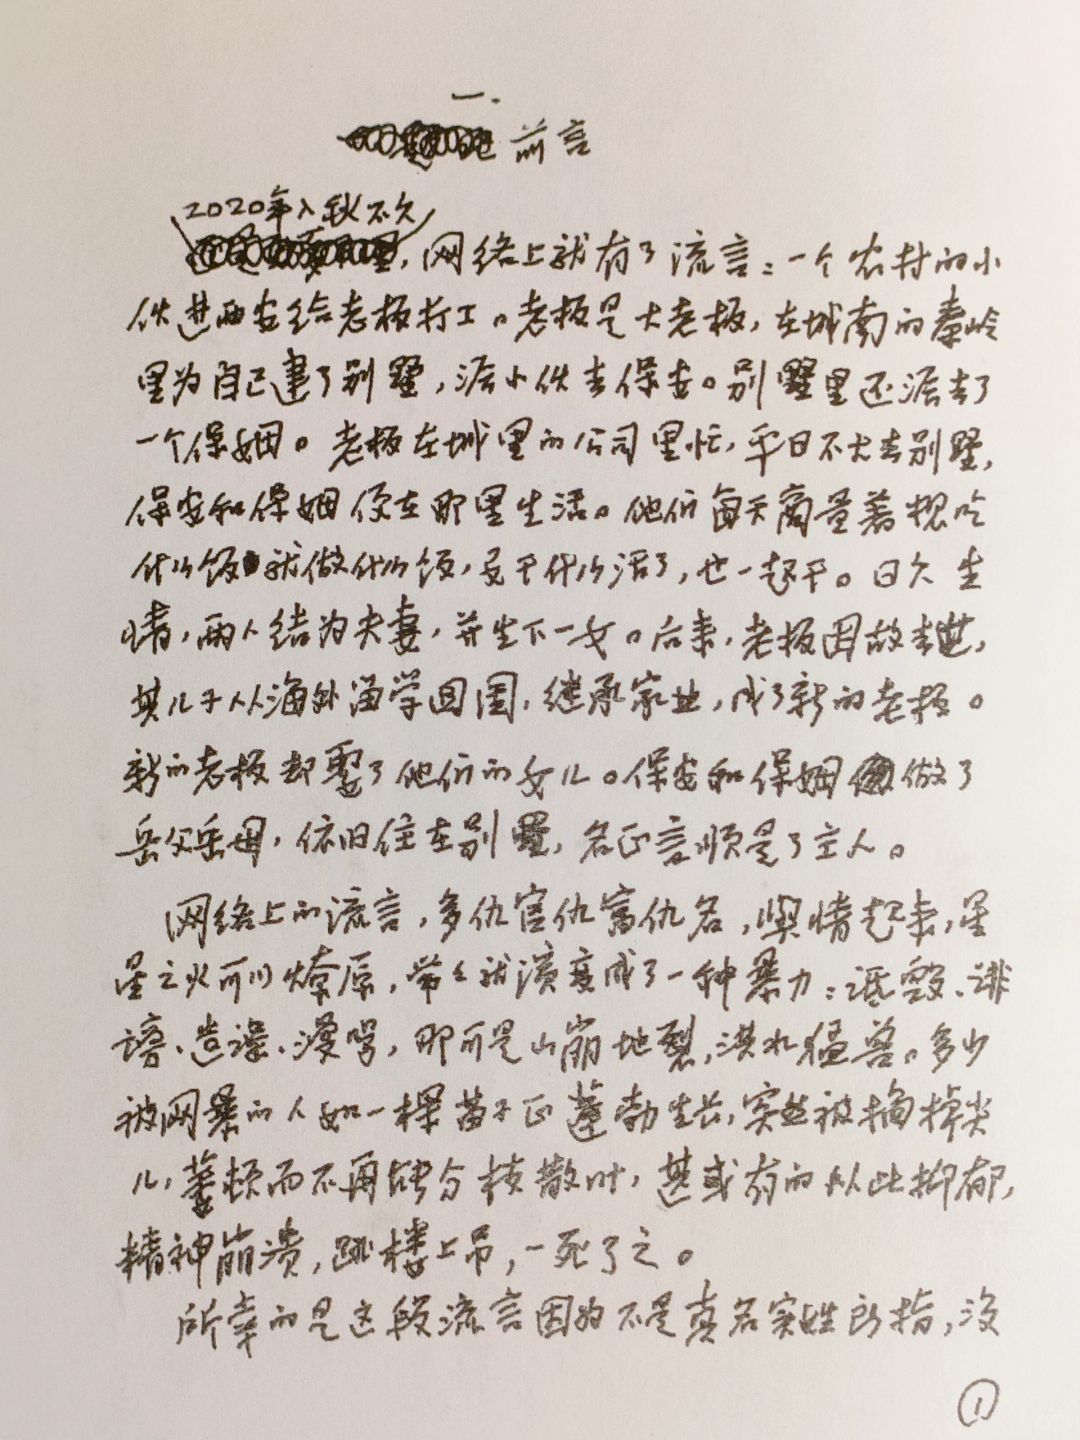 一.
前言
2020年入秋不久
,网络上就有了流言:一个农村的小
伙进西安给老板打工。老板是大老板,在城南的秦岭
里为自己建了别墅,派小伙去保安。别墅里还派去了
一个保姆。老板在城里的公司里忙,平日不大去别墅,
保安和保姆便在那里生活。他们每天商量着想吃
什么饭就做什么饭,要干什么活了,也一起干。日久生
情,两人结为夫妻,并生下一女。后来,老板因故去世,
其儿子从海外留学回国,继承家业,成了新的老板。
新的老板却娶了他们的女儿。保安和保姆做了
岳父岳母,依旧住在别墅,名正言顺是了主人。
网络上的流言,多仇官仇富仇名,舆情起来,星
星之火可以燎原,常常就演变成了一种暴力:诋毁、诽
谤、造谣、谩骂,那可是山崩地裂,洪水猛兽。多少
被网暴的人如一棵苗子正蓬勃生长,突然被掐掉尖
儿,萎顿而不再能分枝散叶,甚或有的从此抑郁,
精神崩溃,跳楼上吊,一死了之。
所幸的是这段流言因为不是真名实姓所指,没
1